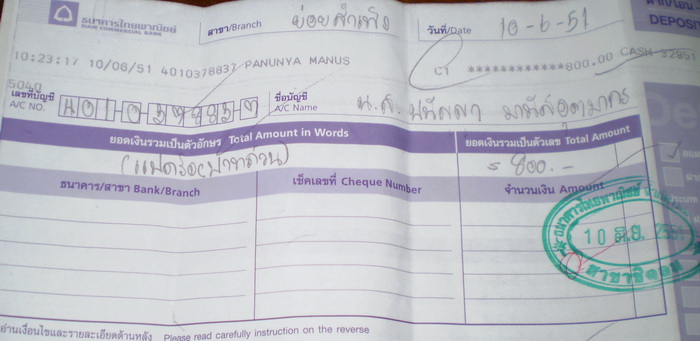 ธนาคารไทยพาณิชย์
SIAM COMMERCIAL BANK
สาขา/Branch ย่อยสำเพ็ง
วันที่/Date 10-6-51
10:23:17 10/06/51 4010378837 PANUNYA MANUS
CT ************800.00 CASH 32951
5040
เลขที่บัญชี
A/C NO.
ชื่อบัญชี
A/C Name น.ส.
ยอดเงินรวมเป็นตัวอักษร Total Amount in Words
ยอดเงินรวมเป็นตัวเลข Total Amount
(แปดร้อยบาทถ้วน)
800.-
ธนาคาร/สาขา Bank/Branch
เช็คเลขที่ Cheque Number
จำนวนเงิน Amount
10 มิ.ย.
อ่านเงื่อนไขและรายละเอียดด้านหลัง Please read carefully instruction on the reverse
DEPOSIT